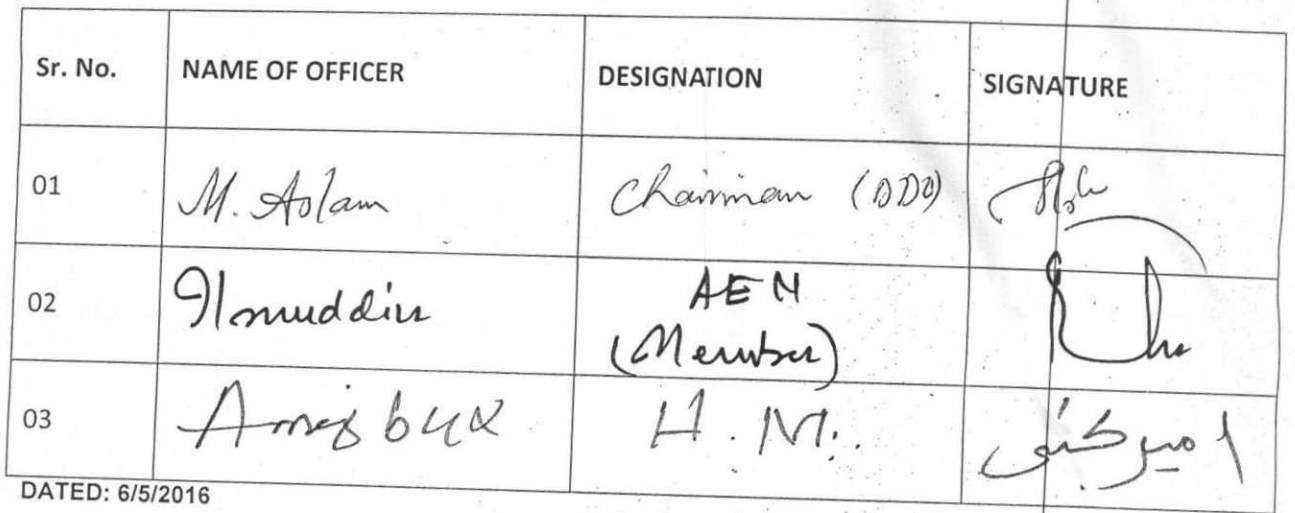 Sr. No. NAME OF OFFICER DESIGNATION SIGNATURE
01 M. Aslam Chairman (DDO)
02 Ilmuddin AEN
(Member)
03 Amir bux H.M.
DATED: 6/5/2016